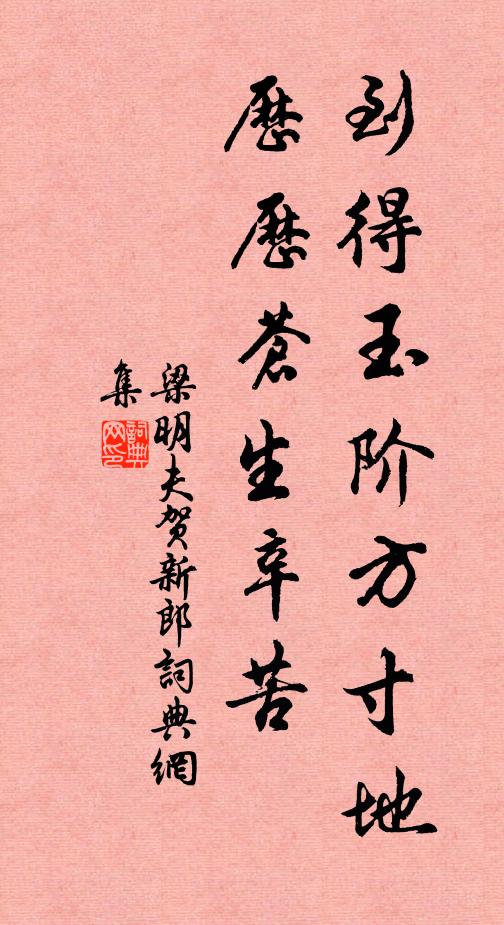 到得玉阶方寸地
历历苍生辛苦
梁明夫贺新郎詞典網
集
詞典
网印